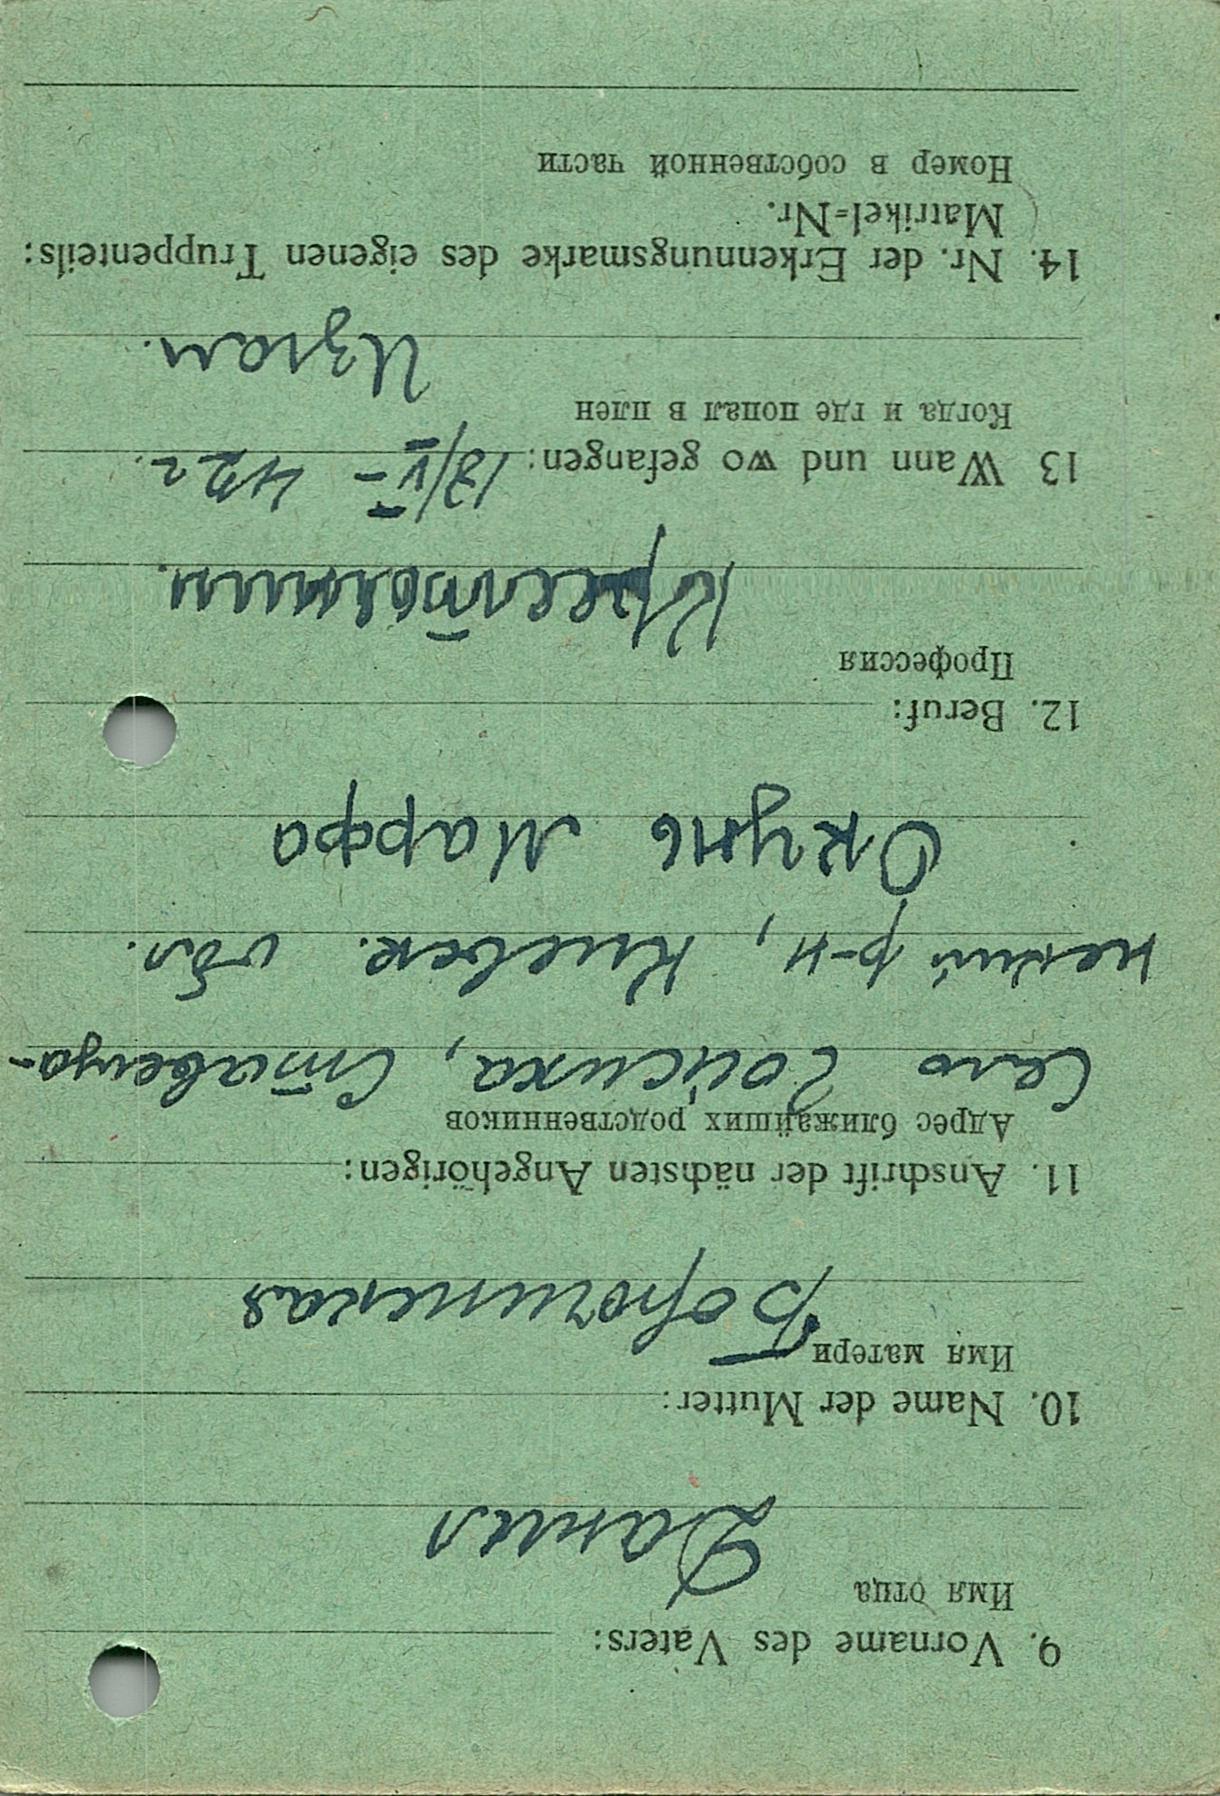 9. Vorname des Vaters:
Имя отца
Данил
10. Name der Mutter:
Имя матери
Борочинская
11. Anschrift der nächsten Angehörigen:
Адрес ближайших родственников
Село Сойсиха, Ставеща-
нский р-н, Киевск. обл.
Окунь Марфа
12. Beruf:
Профессия
Крестьянин.
13 Wann und wo gefangen:
18/V - 42 г.
Когда и где попал в плен
Изюм.
14. Nr. der Erkennungsmarke des eigenen Truppenteils:
Matrikel-Nr.
Номер в собственной части